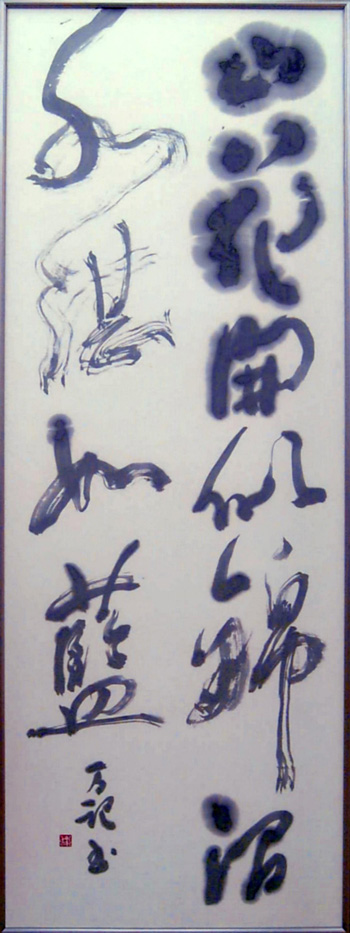 山花開似錦澗
水湛如藍
万記書